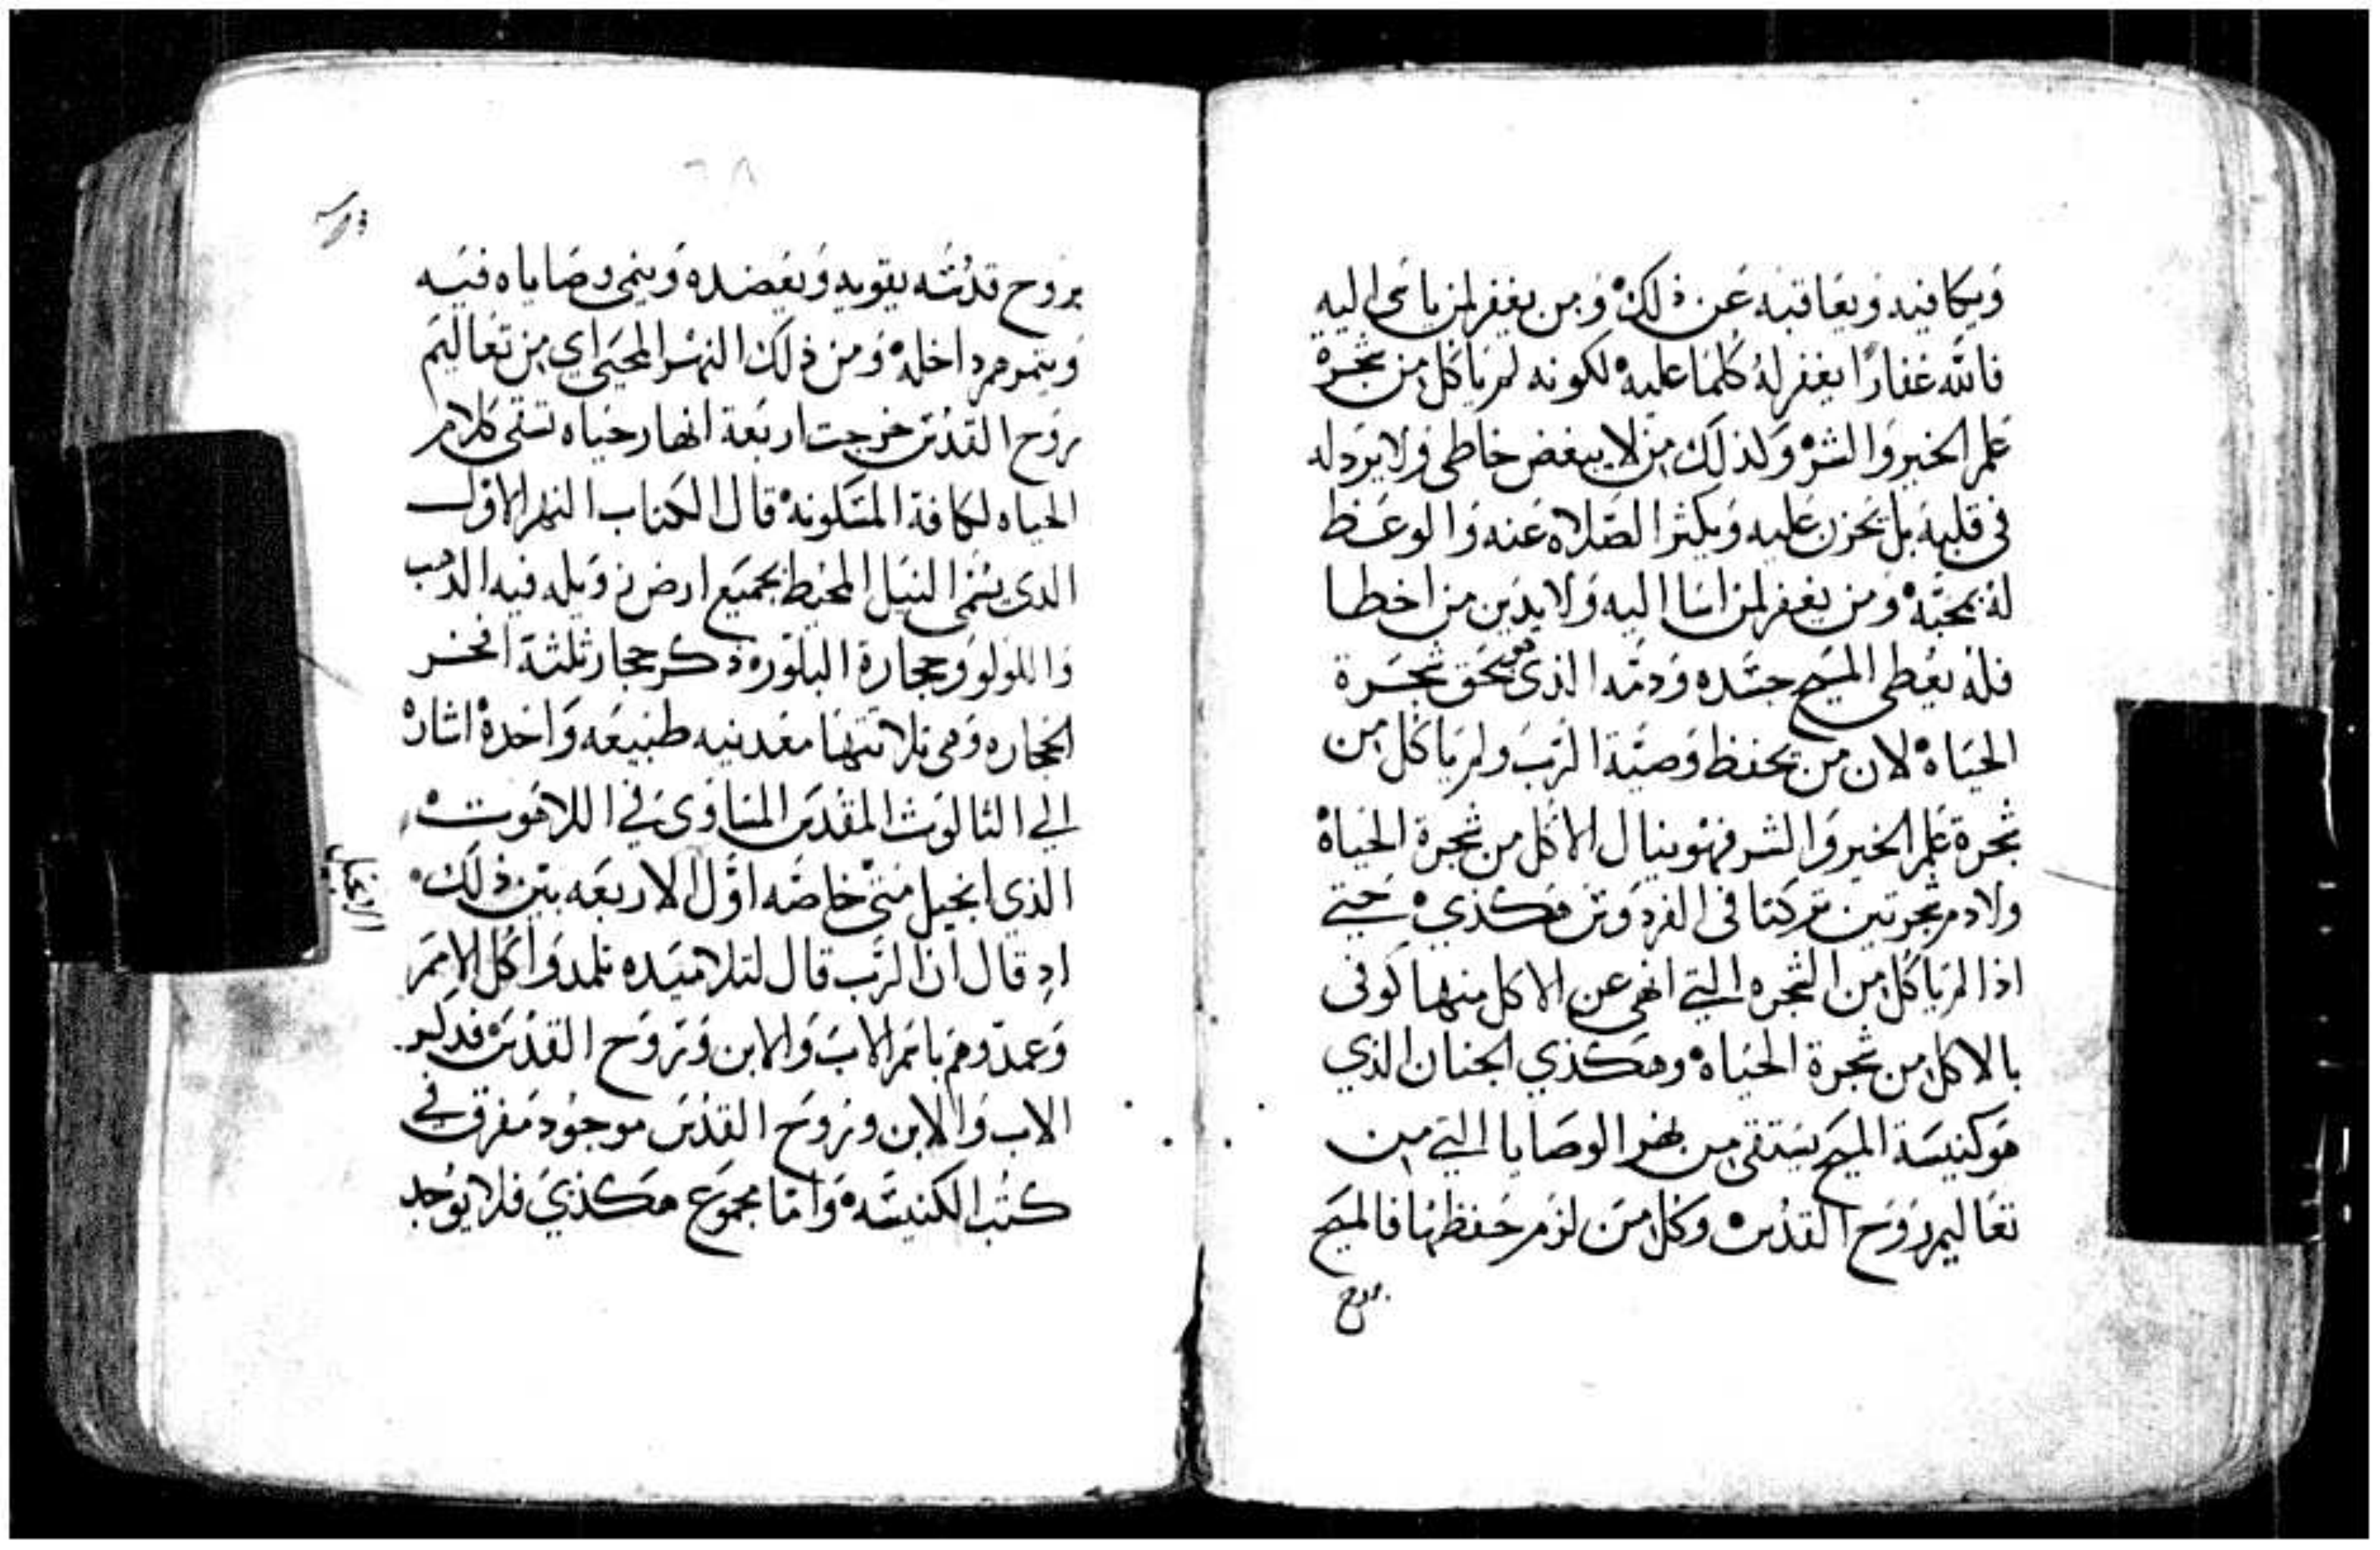 ويكافيه ويعاقبه عن ذلك ومن يغفر لمن ياتى اليه
فالله غفارًا يغفر له كلما عليه لكونه لم ياكل من شجرة
علم الخير والشر ولذلك من لا يبغض خاطى ولا يرد له
فى قلبه بل يحزن عليه ويكثر الصلاه عنه والوعظ
له بمحبه ومن يغفر لمن اسا اليه ولا يدين من اخطا
فله يعطى المسيح جسده ودمه الذى هو بحق شجرة
الحياه لان من يحفظ وصية الرب ولم ياكل من
شجرة علم الخير والشر فهو ينال الاكل من شجرة الحياة
ولادم شجرتين تركتا فى الفردوس هكذي حتي
اذا لم ياكل من الشجره التي انهى عن الاكل منها كوفى
بالاكل من شجرة الحياه وهكذي الجنان الذي
هو كنيسة المسيح يستقى من نهر الوصايا التي من
تعاليم روح القدس وكل من لزم حفظها فالمسيح
بروح
٦٨
بروح قدسه يقويه ويعضده وينمى وصاياه فيه
وينموهم داخله ومن ذلك النهر المحيى اي من تعاليم
روح القدس خرجت اربعة انهار حياه تسقى كلام
الحياه لكافة المسكونه قال الكتاب النهر الاول
الدى يسمى النيل المحيط بجميع ارض زويله فيه الدهب
واللولو وحجارة البلوره ذكر حجار ثلثة افخر
الحجاره وهى ثلاثتها معدنيه طبيعه واحدة اشارة
الي الثالوث المقدس المتساوى في اللاهوت
الذي انجيل متى خاصه اول الاربعه بين ذلك
اد قال ان الرب قال لتلاميده تلمدوا كل الامم
وعمدوهم باسم الاب والابن وروح القدس فدكر
الاب والابن وروح القدس موجود مفرق في
كتب الكنيسه واما مجموع هكذي فلا يوجد